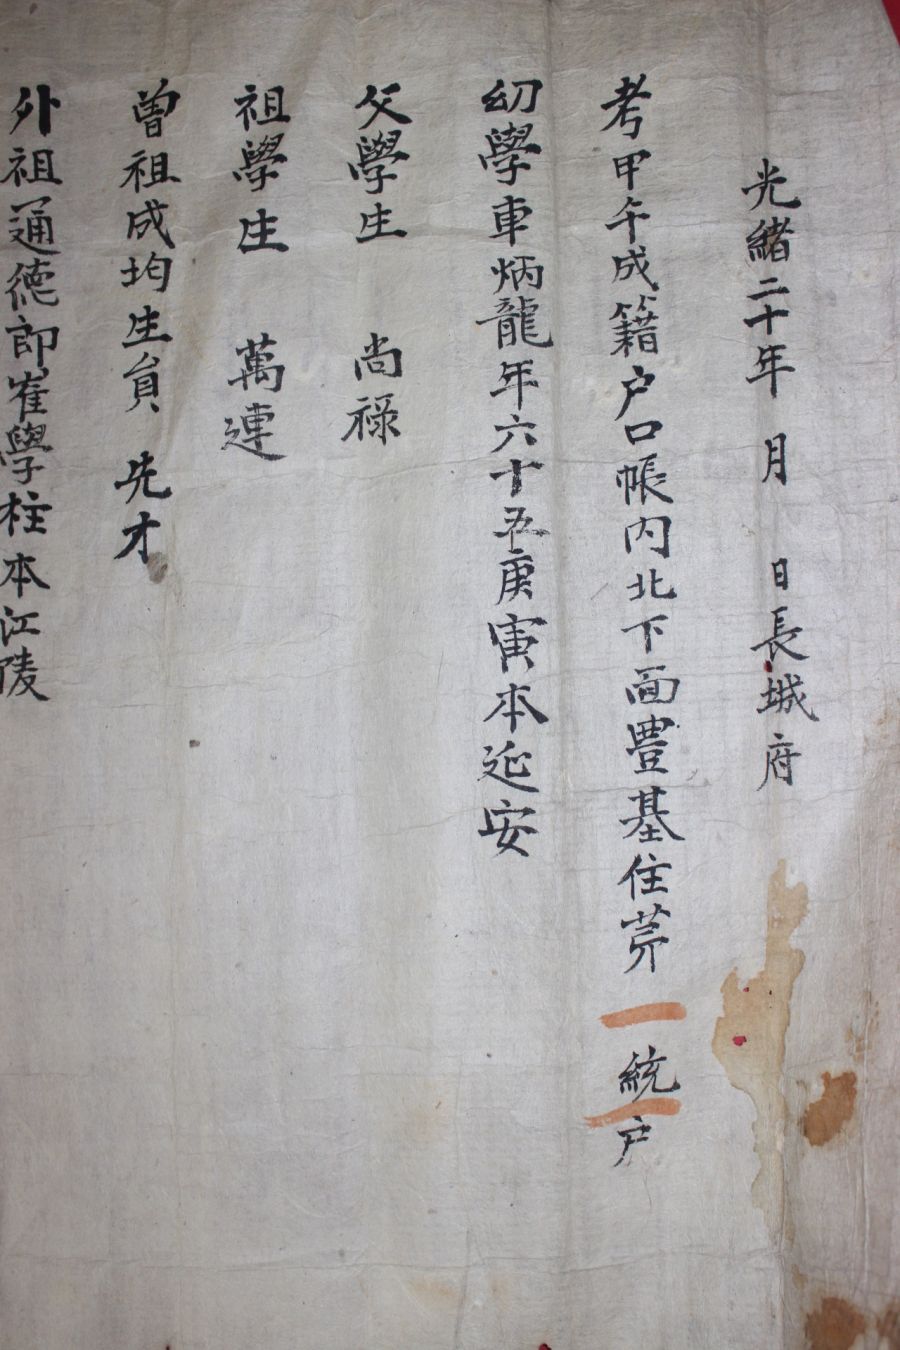 光緒二十年 月 日長城府
考甲午成籍户口帳内北下面豊基住芹 一 統 一 户
幼學車炳龍年六十五庚寅本延安
父學生 尚祿
祖學生 萬連
曽祖成均生員 先才
外祖通德郎崔學柱本江陵